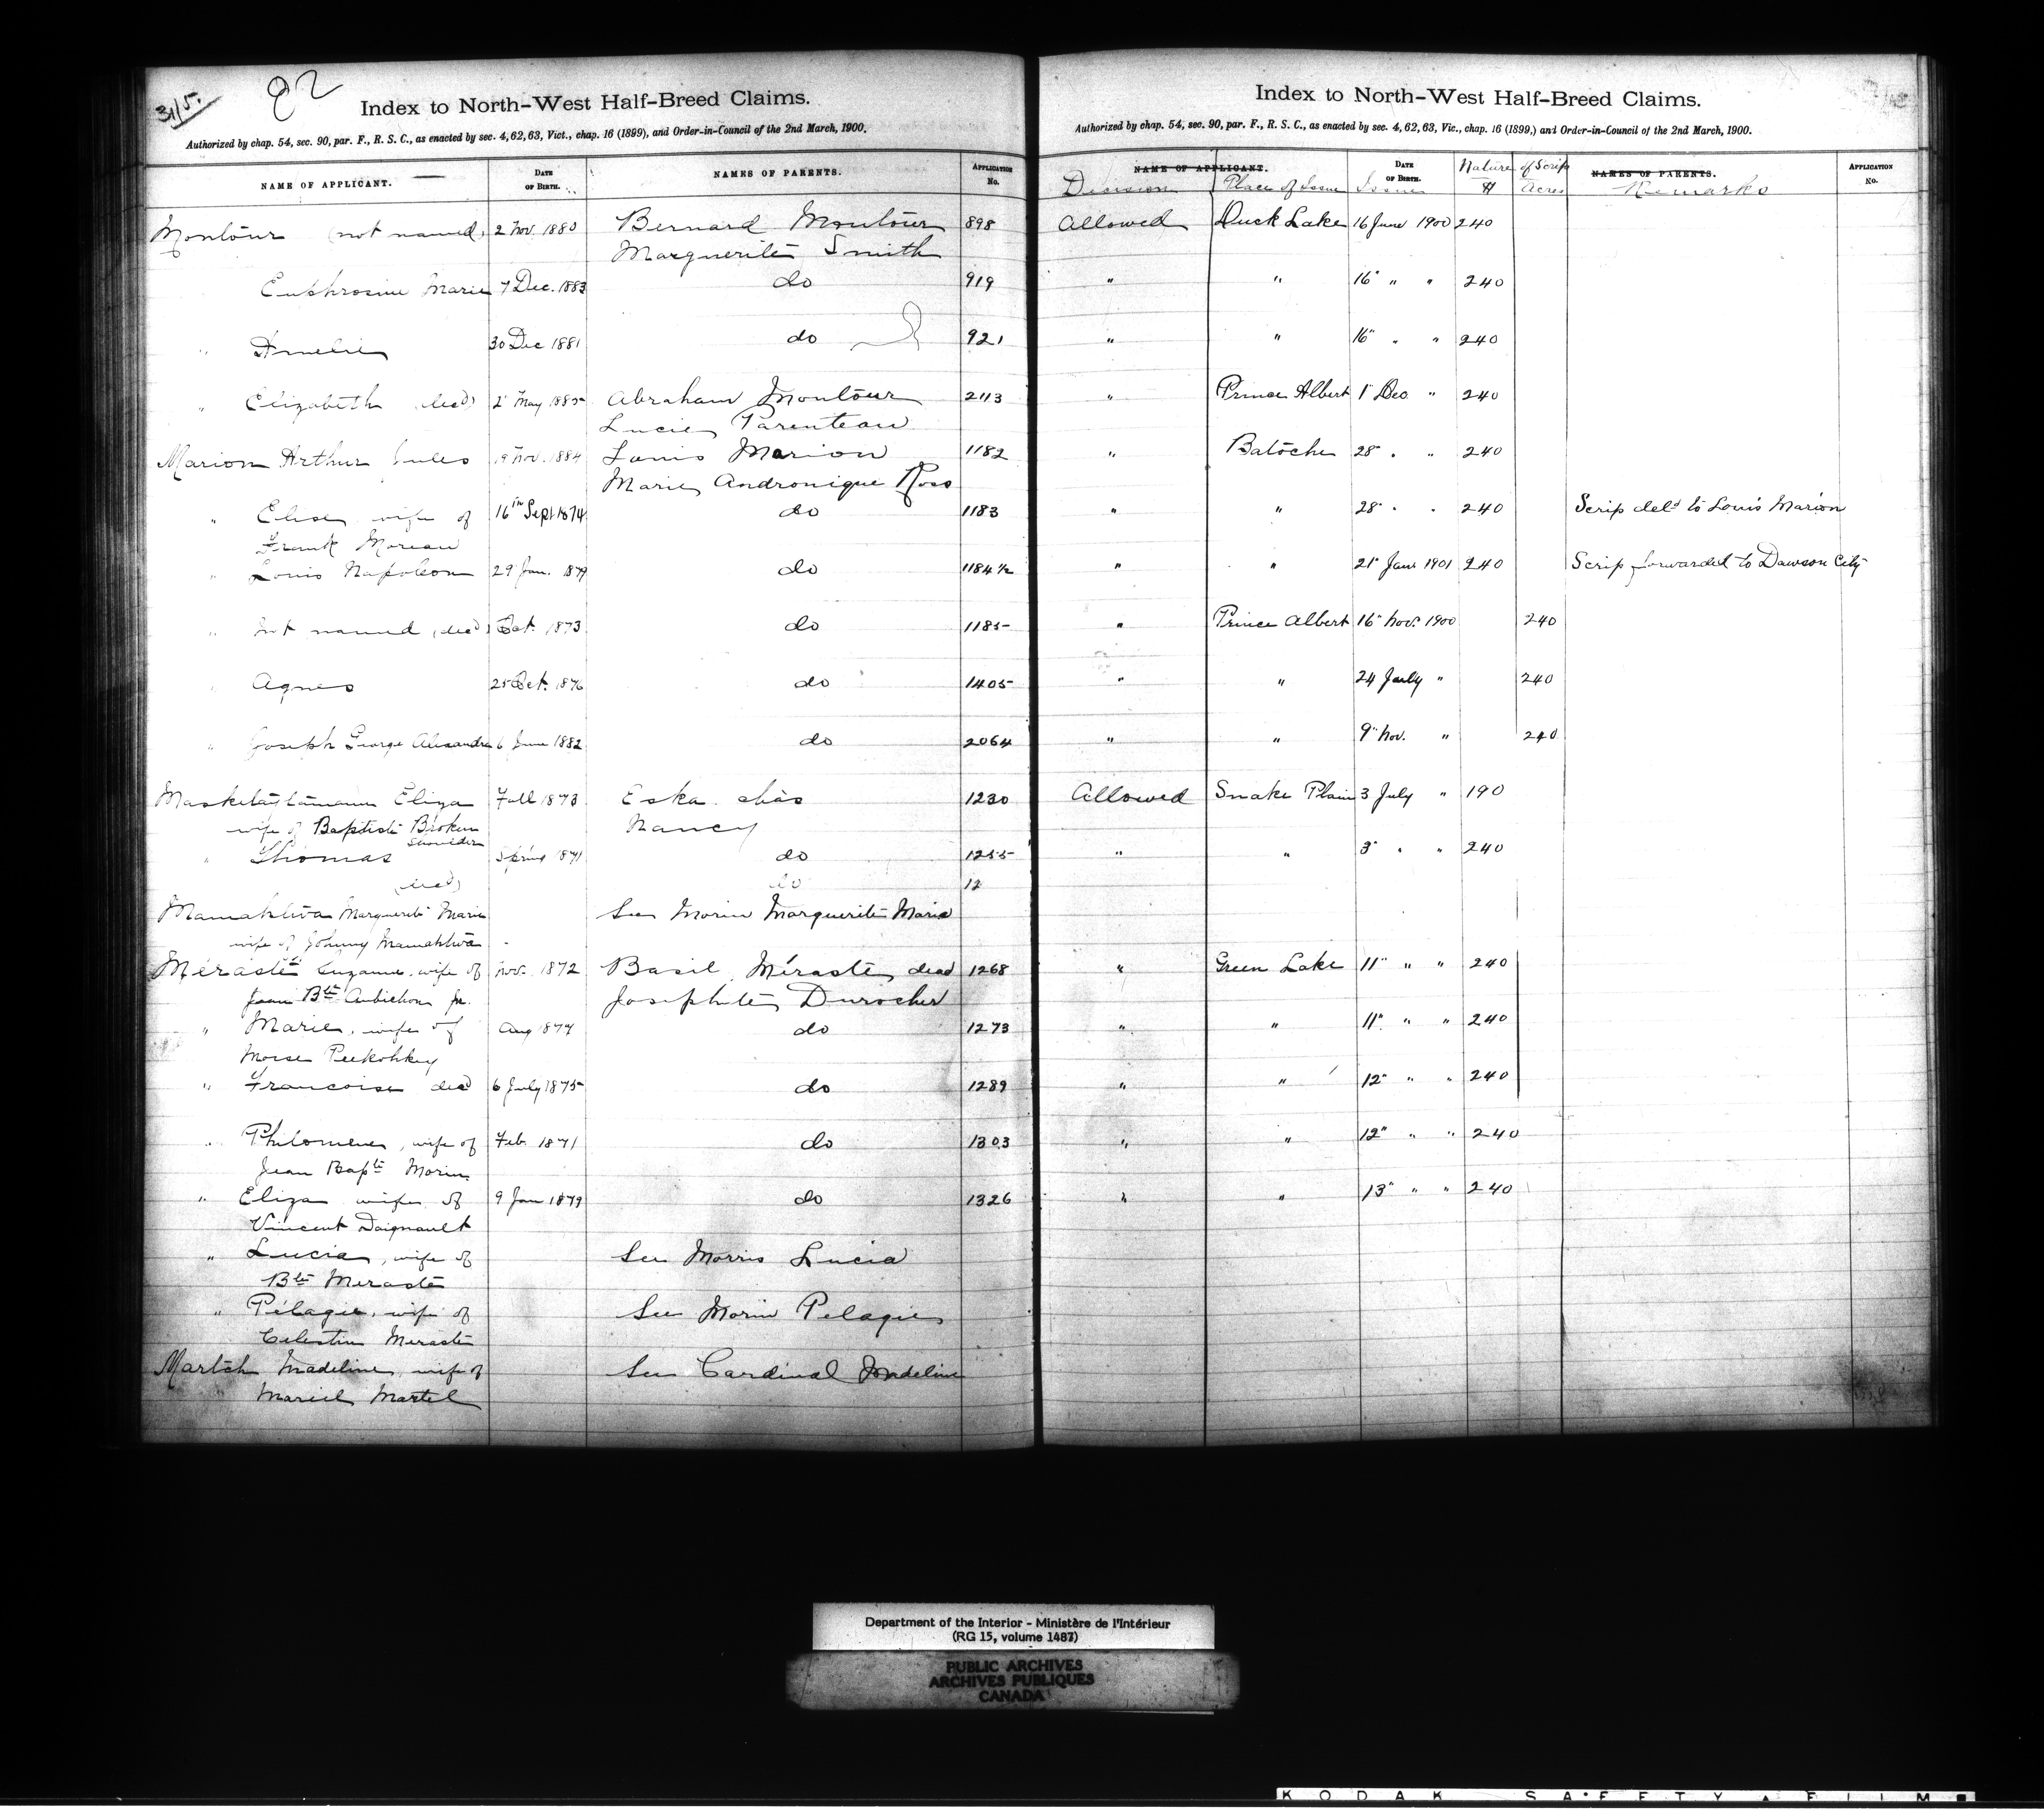 31/5.
82
Index to North-West Half-Breed Claims.
Authorized by chap. 54, sec. 90, par. F., R. S. C., as enacted by sec. 4, 62, 63, Vict., chap. 16 (1899), and Order-in-Council of the 2nd March, 1900.
NAME OF APPLICANT. DATE OF BIRTH. NAMES OF PARENTS. APPLICATION No.
Montour (not named) 2 Nov. 1880 Bernard Montour 898
Marguerite Smith
Euphrosine Marie 7 Dec. 1883 do 919
" Amelie 30 Dec 1881 do 921
" Elizabeth (decd) 2" May 1885 Abraham Montour 2113
Lucie Parenteau
Marion Arthur Jules 9 Nov. 1884 Louis Marion 1182
Marie Andronique Ross
" Elise wife of 16th Sept 1874 do 1183
Frank Moreau
" Louis Napoleon 29 Jan. 1879 do 1184½
" Not named (decd) Oct. 1873 do 1185
" Agnes 25 Oct. 1876 do 1405
" Joseph George Alexandre 6 June 1882 do 2064
Eliza Fall 1873 Eska chas 1230
wife of Baptiste Broken Nancy
Shoulder
" Thomas Spring 1871 do 1255
(decd) do 12
Mamahtwa Marguerite Marie See Morin Marguerite Marie
wife of Johnny Mamahtwa
Méraste Suzanne wife of Nov. 1872 Basil Méraste dead 1268
Jean Bte Aubichon Jr. Josephte Durocher
" Marie, wife of Aug 1877 do 1273
Morse
" Francoise decd 6 July 1875 do 1289
" Philomene, wife of Feb. 1871 do 1303
Jean Bapte Morin
" Eliza wife of 9 Jan 1879 do 1326
Vincent Daignault
" Lucia, wife of See Morris Lucia
Bte Meraste
" Pélagie, wife of See Morin Pelagie
Celestin Meraste
Madeline, wife of See Cardinal Madeline
Martel
Index to North-West Half-Breed Claims.
Authorized by chap. 54, sec. 90, par. F., R. S. C., as enacted by sec. 4, 62, 63, Vic., chap. 16 (1899,) and Order-in-Council of the 2nd March, 1900.
NAME OF APPLICANT. DATE OF BIRTH. Nature of Scrip NAMES OF PARENTS. APPLICATION No.
Decision Place of Issue Issue $ Acres Remarks
Allowed Duck Lake 16 June 1900 240
" " 16" " " 240
" " 16" " " 240
" Prince Albert 1" Dec " 240
" Batoche 28" " " 240
" " 28" " " 240 Scrip deld to Louis Marion
" " 21" Jany 1901 240 Scrip forwarded to Dawson City
" Prince Albert 16" Nov. 1900 240
" " 24 July " 240
" " 9" Nov. " 240
Allowed Snake Plain 3 July " 190
" " 3" " " 240
" Green Lake 11" " " 240
" " 11" " " 240
" " 12" " " 240
" " 12" " " 240
" " 13" " " 240
Department of the Interior - Ministère de l'Intérieur
(RG 15, volume 1487)
PUBLIC ARCHIVES
ARCHIVES PUBLIQUES
CANADA
KODAK SAFETY FILM